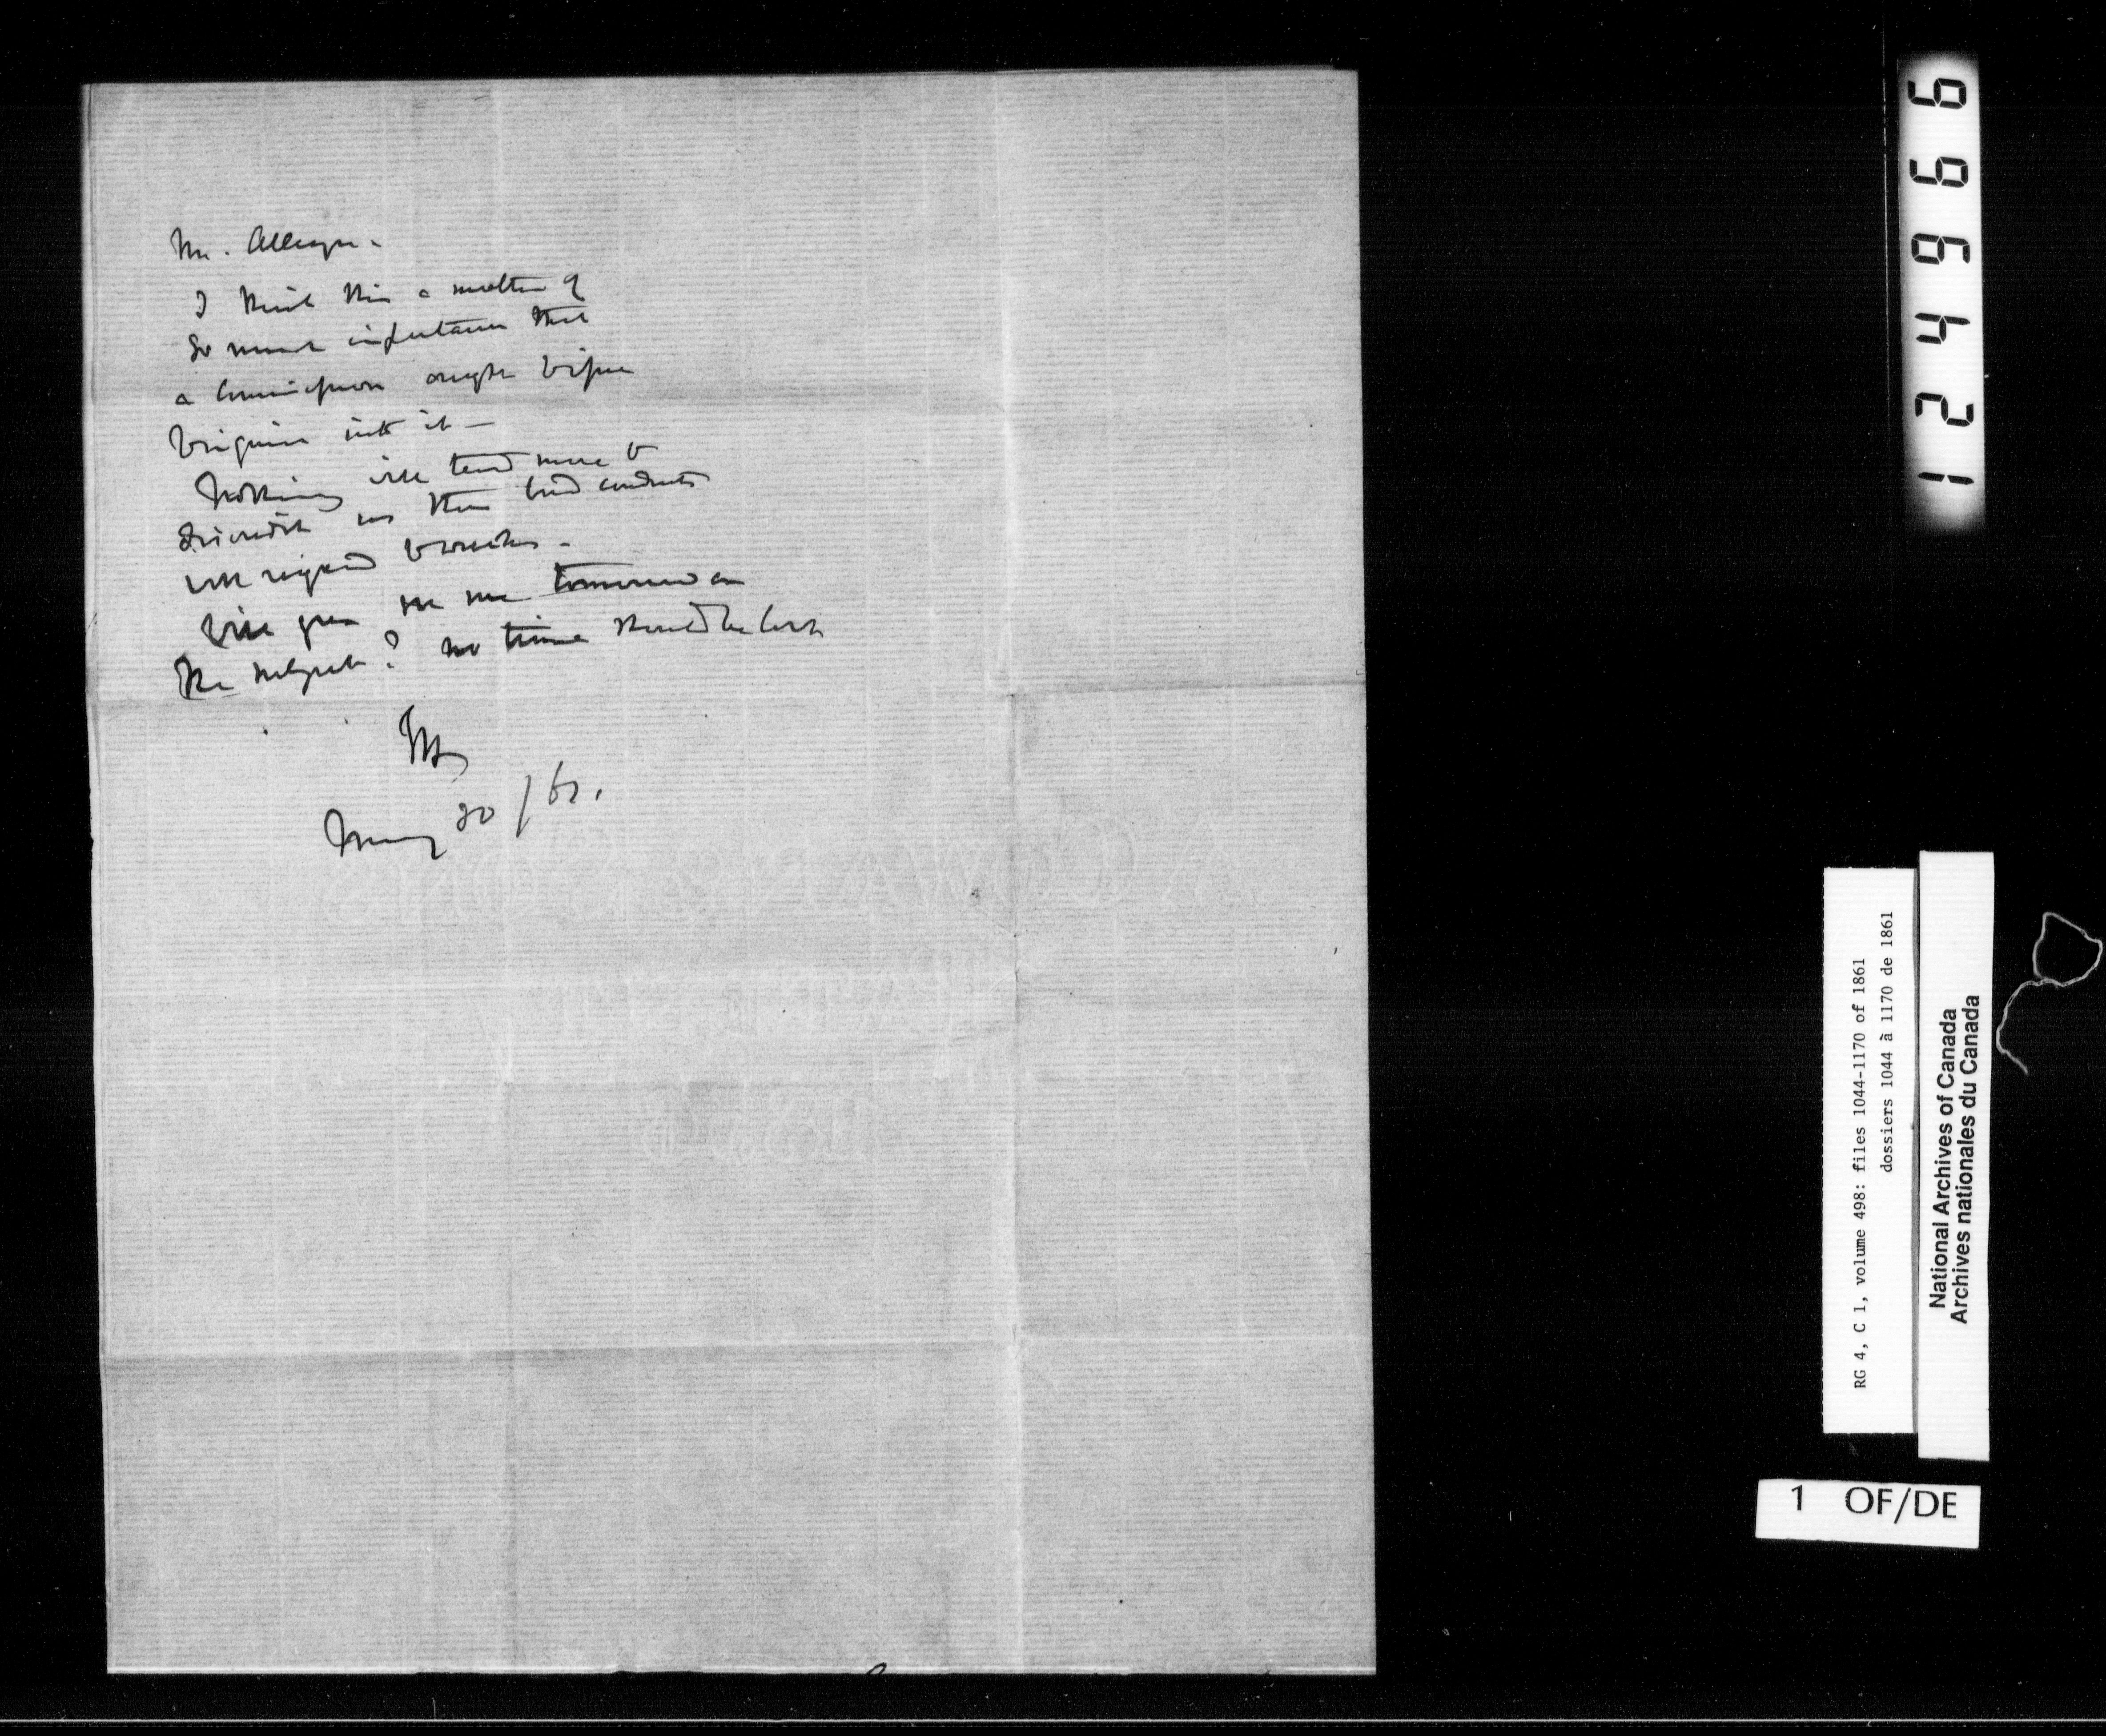 Mr. Alleyn -
I think this a matter of
so much importance that
a Commission ought to issue
to inquire into it -
Nothing will tend more to
discredit us than bad conduct
with regard to
Will you see me tomorrow on
the subject? no time should be lost
May 20/61.
A COWAN & SONS
124966
RG 4, C 1, volume 498: files 1044-1170 of 1861
dossiers 1044 à 1170 de 1861
National Archives of Canada
Archives nationales du Canada
1 OF/DE